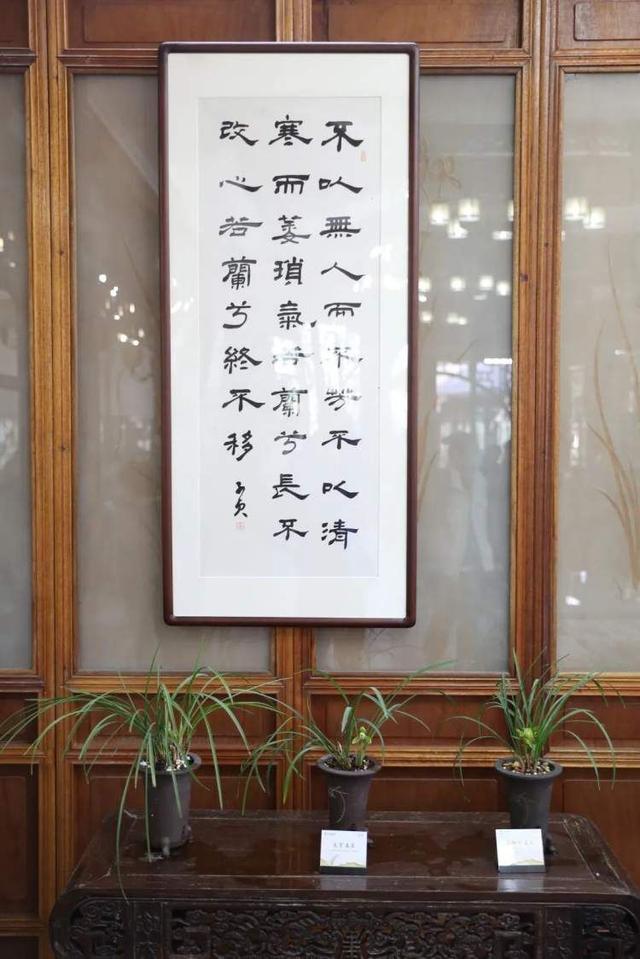 不以無人而不芳不以清
寒而萎瑣氣若蘭兮長不
改心若蘭兮終不移